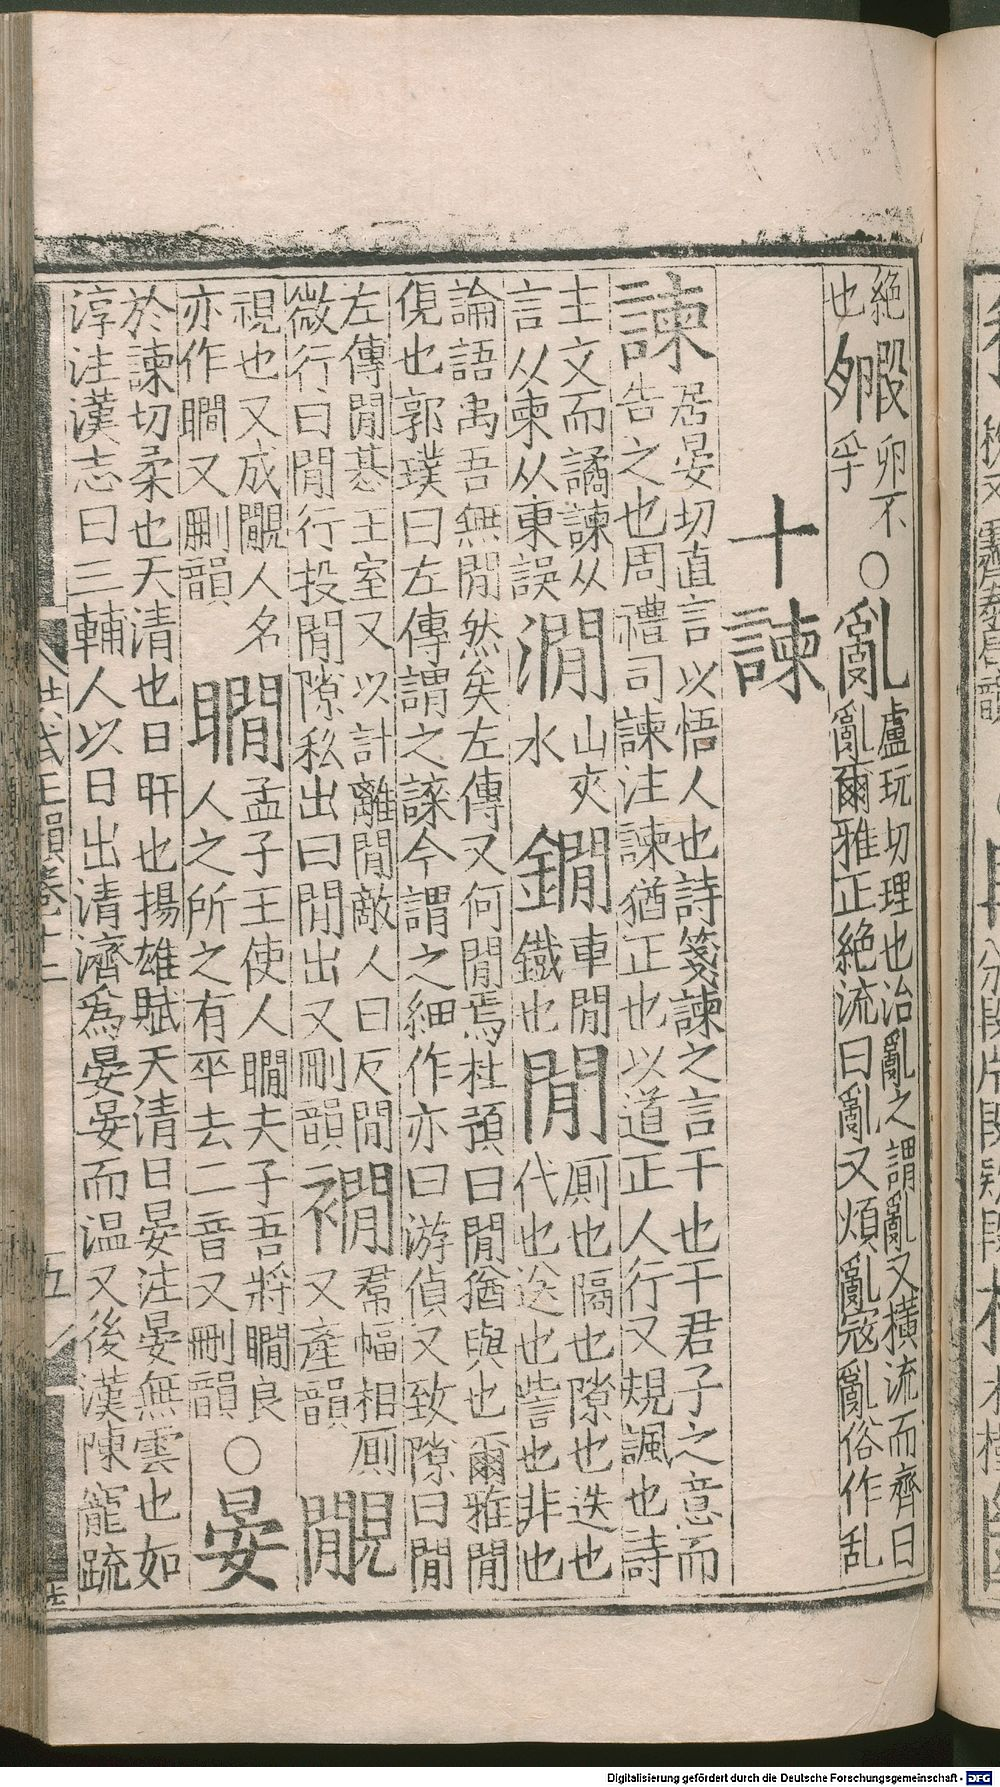 絶
毈卵不
也
夘孚
○亂盧玩切理也治亂之謂亂又橫流而齊曰
亂爾雅正絶流曰亂又煩亂寇亂俗作乱
十諫
諫居晏切直言以悟人也詩箋諫之言干也干君子之意而
告之也周禮司諫注諫猶正也以道正人行又規諷也詩
主文而譎諫从
言从柬从東誤
澗山夾
水
鐗車閒
鐵也
閒厠也隔也隙也迭也
代也送也訾也非也
論語禹吾無閒然矣左傳又何閒焉杜預曰閒猶與也爾雅閒
俔也郭璞曰左傳謂之諜今謂之細作亦曰游偵又致隙曰閒
左傳閒惎王室又以計離閒敵人曰反閒
微行曰閒行投閒隙私出曰閒出又刪韻
襉羣幅相厠
又產韻
覵
視也又成覵人名
亦作瞷又刪韻
瞷孟子王使人瞷夫子吾將瞷良
人之所之有平去二音又刪韻
○晏
於諫切柔也天清也日旰也揚雄賦天清日晏注晏無雲也如
淳注漢志曰三輔人以日出清濟爲晏晏而温又後漢陳寵䟽
洪武正韻卷十二
五
Digitalisierung gefördert durch die Deutsche Forschungsgemeinschaft - DFG